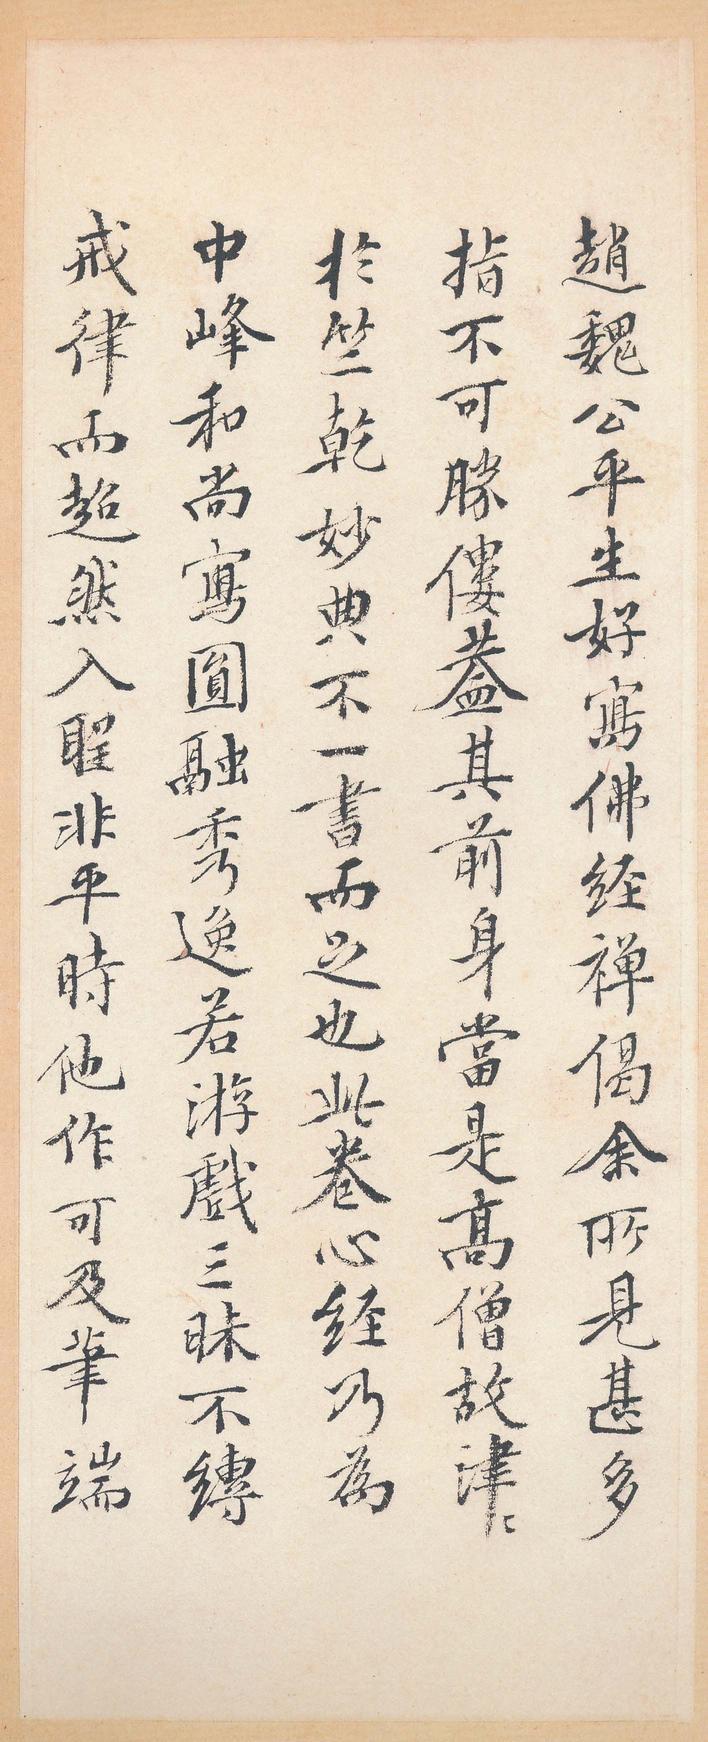 趙魏公平生好寫佛経禅偈余所見甚多
指不可勝僂葢其前身當是髙僧故津〻
扵竺乾妙典不一書而足也此卷心経乃為
中峰和尚寫圓融秀逸若游戲三昧不縛
戒律而超然入聖非平時他作可及筆端